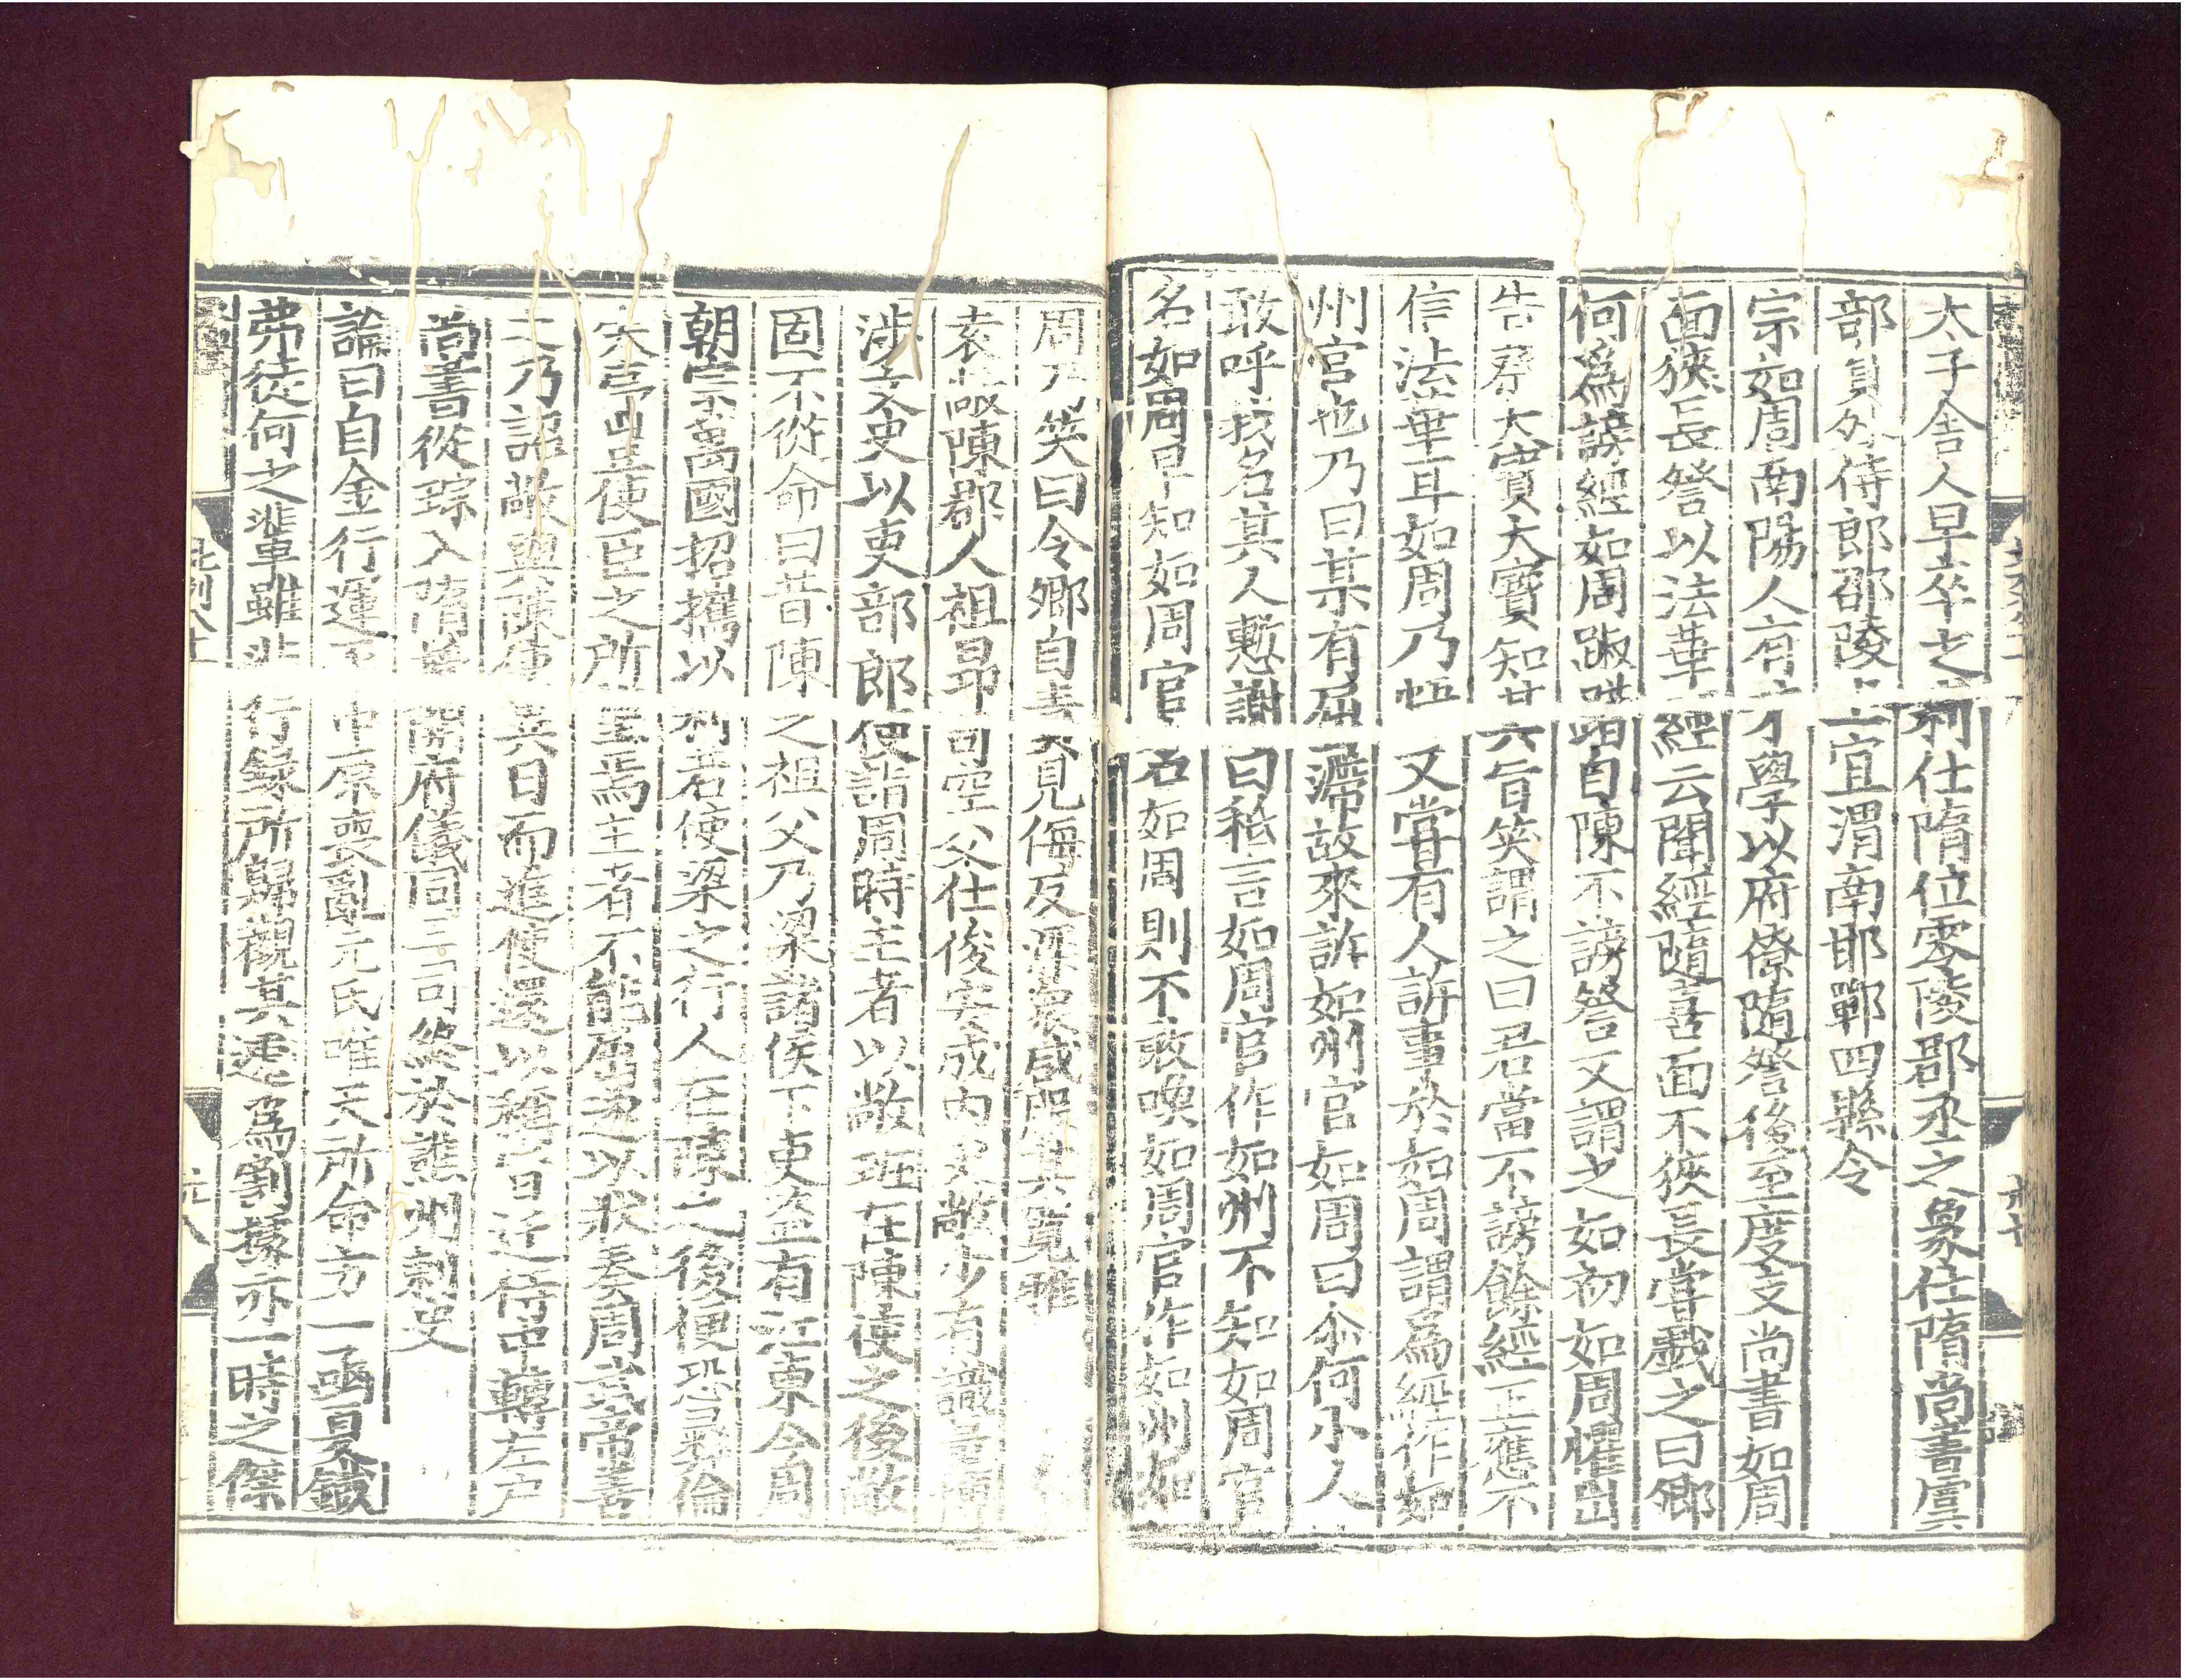 太子舍人早卒之利仕隋位零陵郡丞之象仕隋尚書虞
部員外侍郎邵陵上宜渭南邯鄲四縣令
宗如周南陽人有才學以府僚隨詧後至度支尚書如周
面狹長詧以法華經云聞經隨喜面不狹長嘗戲之曰卿
何爲謗經如周踧踖自陳不謗詧又謂之如初如周懼出
告蔡大寶大寶知其旨笑謂之曰君當不謗餘經正應不
信法華耳如周乃悟又嘗有人訴事於如周謂爲經作如
州官也乃曰某有屈滯故來訴如州官如周曰尒何小人
敢呼我名其人慙謝曰秪言如周官作如州不知如周官
名如周早知如周官名如周則不敢喚如周官作如州如
周乃笑曰令卿自責見侮反深衆咸服其寬雅
袁敞陳郡人祖昂司空父仕俊安成內史敞少有識量
涉文史以吏部郎使詣周時主者以敞班在陳使之後敞
固不從命曰昔陳之祖父乃梁諸侯下吏盗有江東今周
朝宗萬國招攜以利若使梁之行人在陳之後便恐彝倫
失序豈使臣之所望焉主者不能屈遂以狀奏周武帝善
之乃詔敞與陳使異日而進使還以稱旨遷侍中轉左户
尚書從琮入隋授開府儀同三司終於譙州刺史
論曰自金行運否中原喪亂元氏唯天所命方一函夏鐵
弗徒何之輩雖非行録所歸觀其遞爲割據亦一時之傑